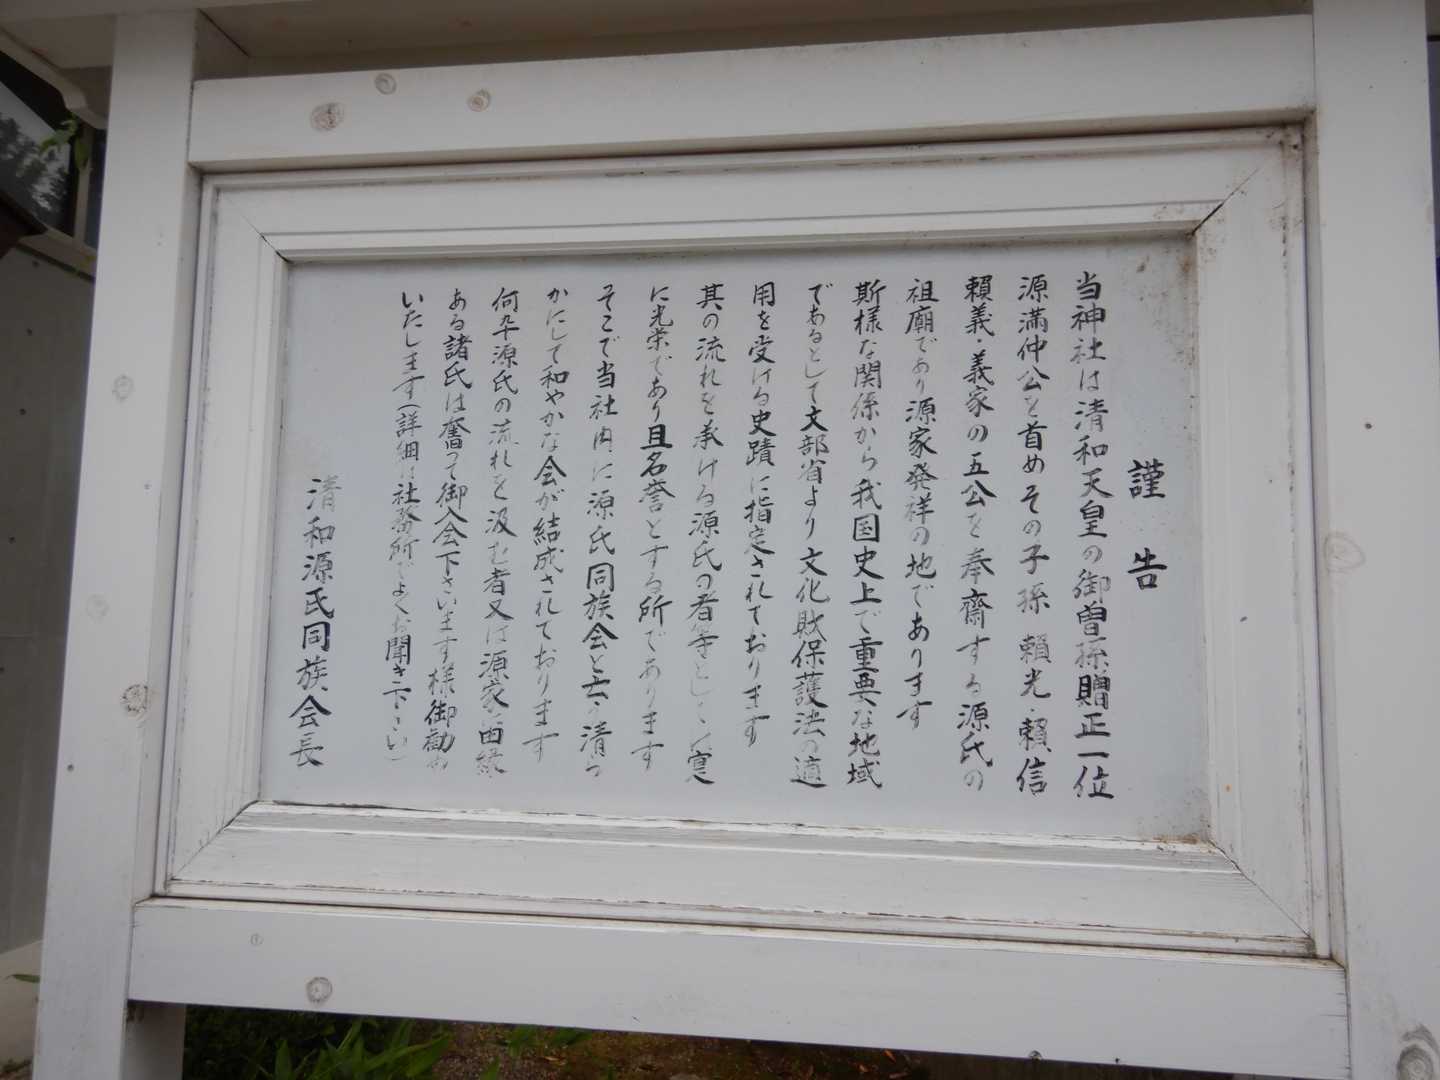 謹告
当神社は清和天皇の御曽孫贈正一位
源満仲公を首めその子孫 頼光・頼信
頼義・義家の五公を奉齋する源氏の
祖廟であり源家発祥の地であります
斯様な関係から我国史上で重要な地域
であるとして文部省より文化財保護法の適
用を受ける史蹟に指定されております
其の流れを承ける源氏の者等として寔
に光栄であり且名誉とする所であります
そこで当社内に源氏同族会と云う清ら
かにして和やかな会が結成されております
何卒源氏の流れを汲む者又は源家に由縁
ある諸氏は奮って御入会下さいます様御勧め
いたします(詳細は社務所でよくお聞き下さい)
清和源氏同族会長